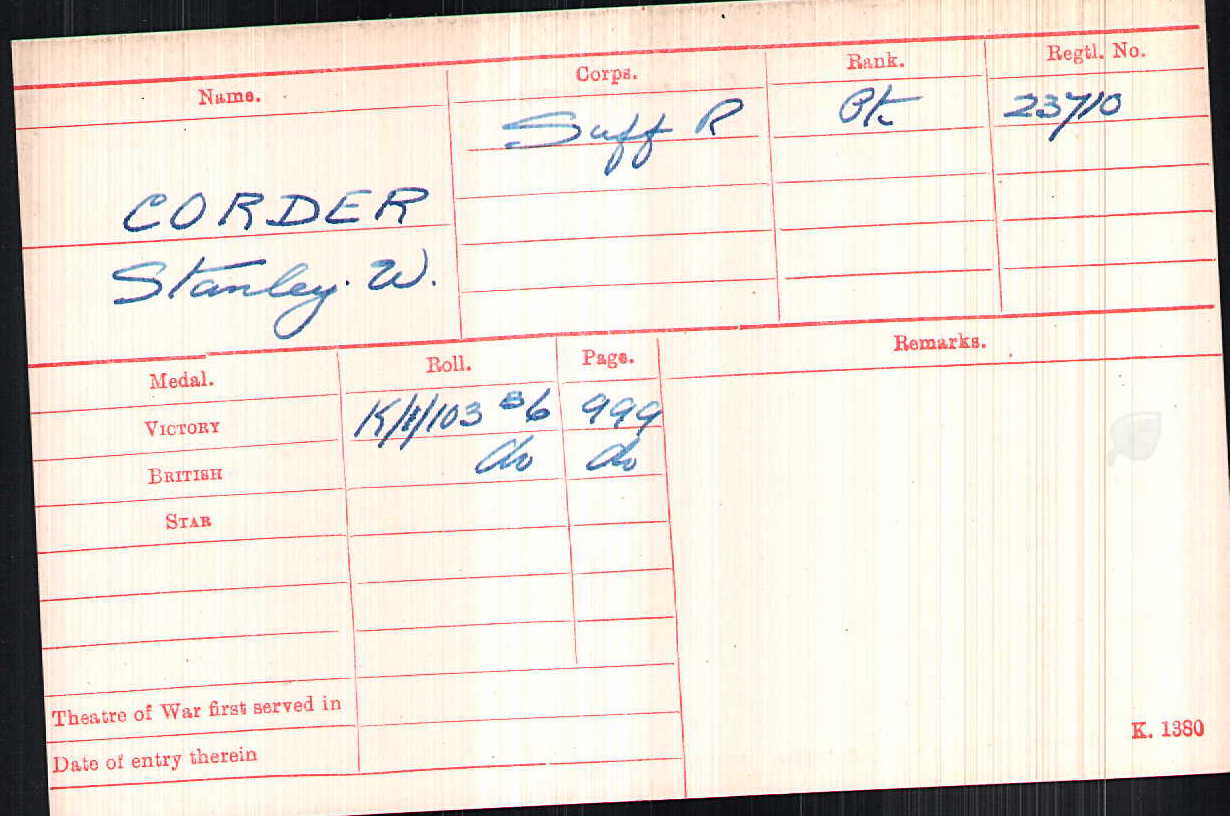 Name. Corps. Rank. Regtl. No.
Suff R Pte 23710
CORDER
Stanley. W.
Medal. Roll. Page. Remarks.
VICTORY K/1/103 B6 999
BRITISH do do
STAR
Theatre of War first served in
Date of entry therein
K. 1380